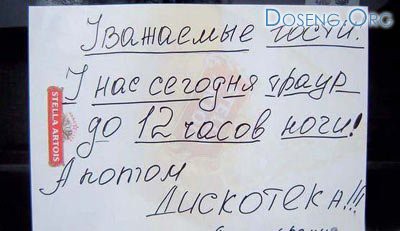 Doseng.Org
Уважаемые гости!
У нас сегодня траур
до 12 часов ночи!
STELLA ARTOIS
А потом
дискотека!!!